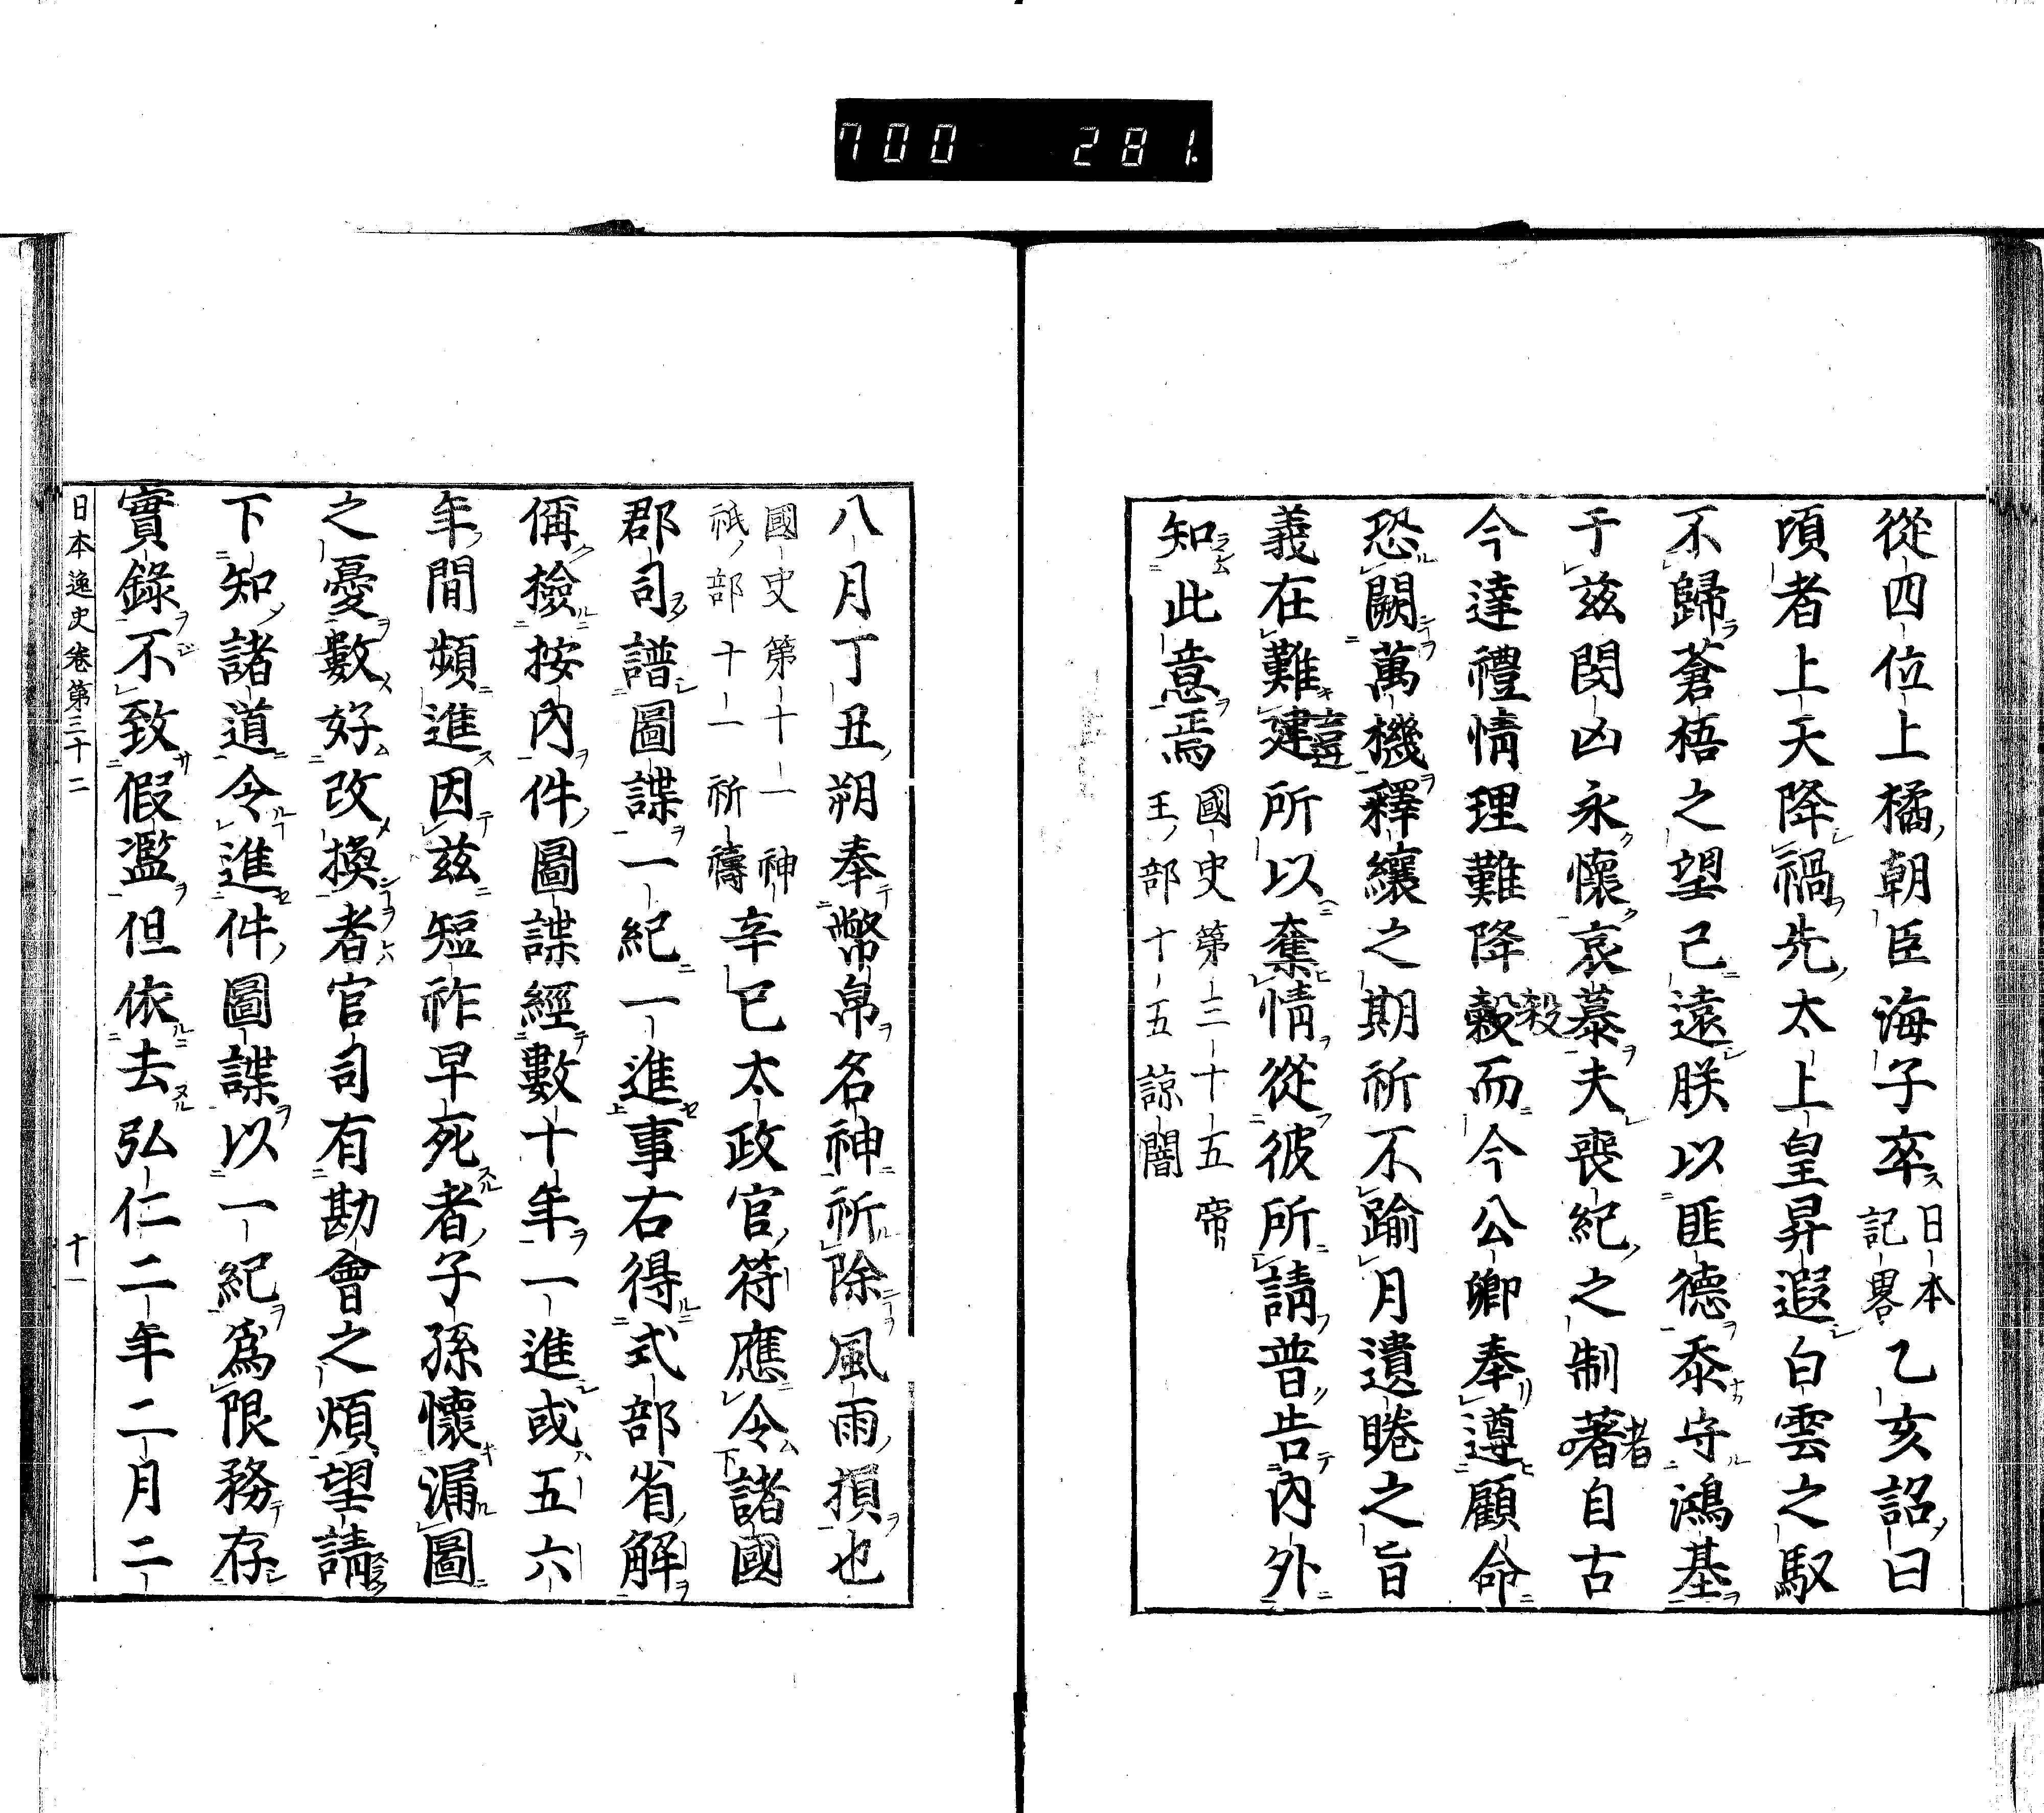 700 281
從四位上橘朝臣海子卒日本記畧乙亥詔曰
頃者上天降禍先太上皇昇遐白雲之馭
不歸蒼梧之望已遠朕以匪德忝守鴻基
于兹閔凶永懷哀慕夫喪紀之制著自古
者
今達禮情理難降縠而今公卿奉遵顧命
穀
恐闕萬機釋纕之期祈不踰月遺睠之旨
義在難建所以奪情從彼所請普告內外
違
知此意焉國史第三十五帝王部十五諒闇
八月丁丑朔奉幣帛名神祈除風雨損也
國史第十一神祇部十一祈禱辛巳太政官符應令諸國
郡司譜圖諜一紀一進事右得式部省解
偁撿按內件圖諜經數十年一進或五六
年間頻進因兹短祚早死者子孫懷漏圖
之憂數好改換者官司有勘會之煩望請
下知諸道令進件圖諜以一紀爲限務存
實錄不致假濫但依去弘仁二年二月二
日本逸史卷第三十二 十一